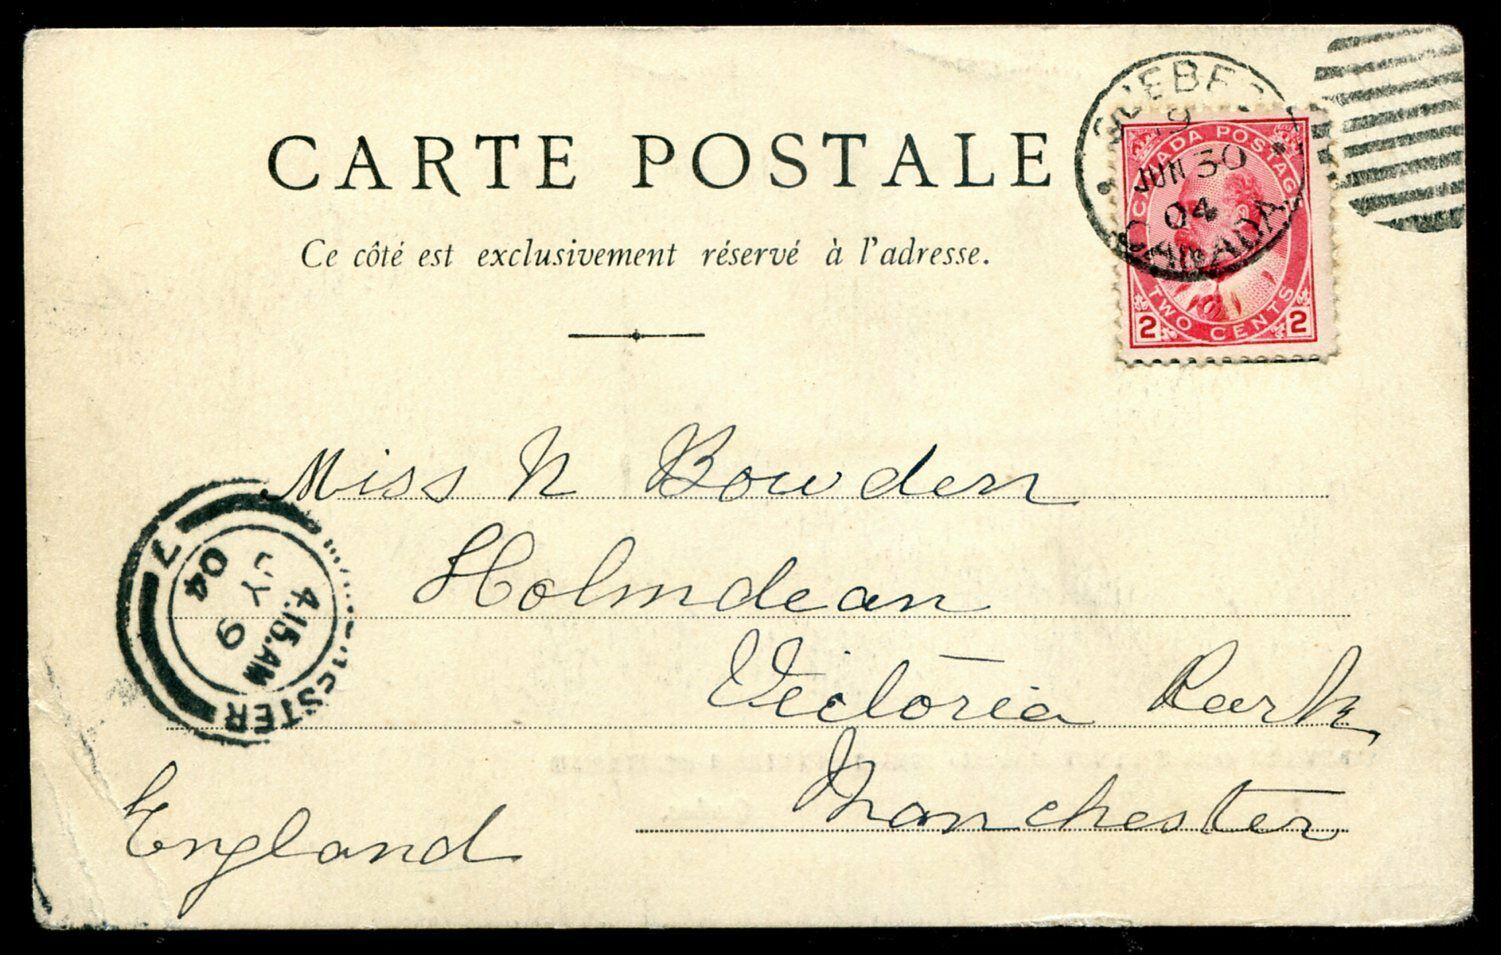 CARTE POSTALE
Ce côté est exclusivement réservé à l'adresse.
QUEBEC
19
JUN 30
04
CANADA
CANADA POSTAGE
TWO CENTS
2 2
Miss N Bowden
Holmdean
Victoria Park
Manchester
England
4.15.AM
JY 9
04
7